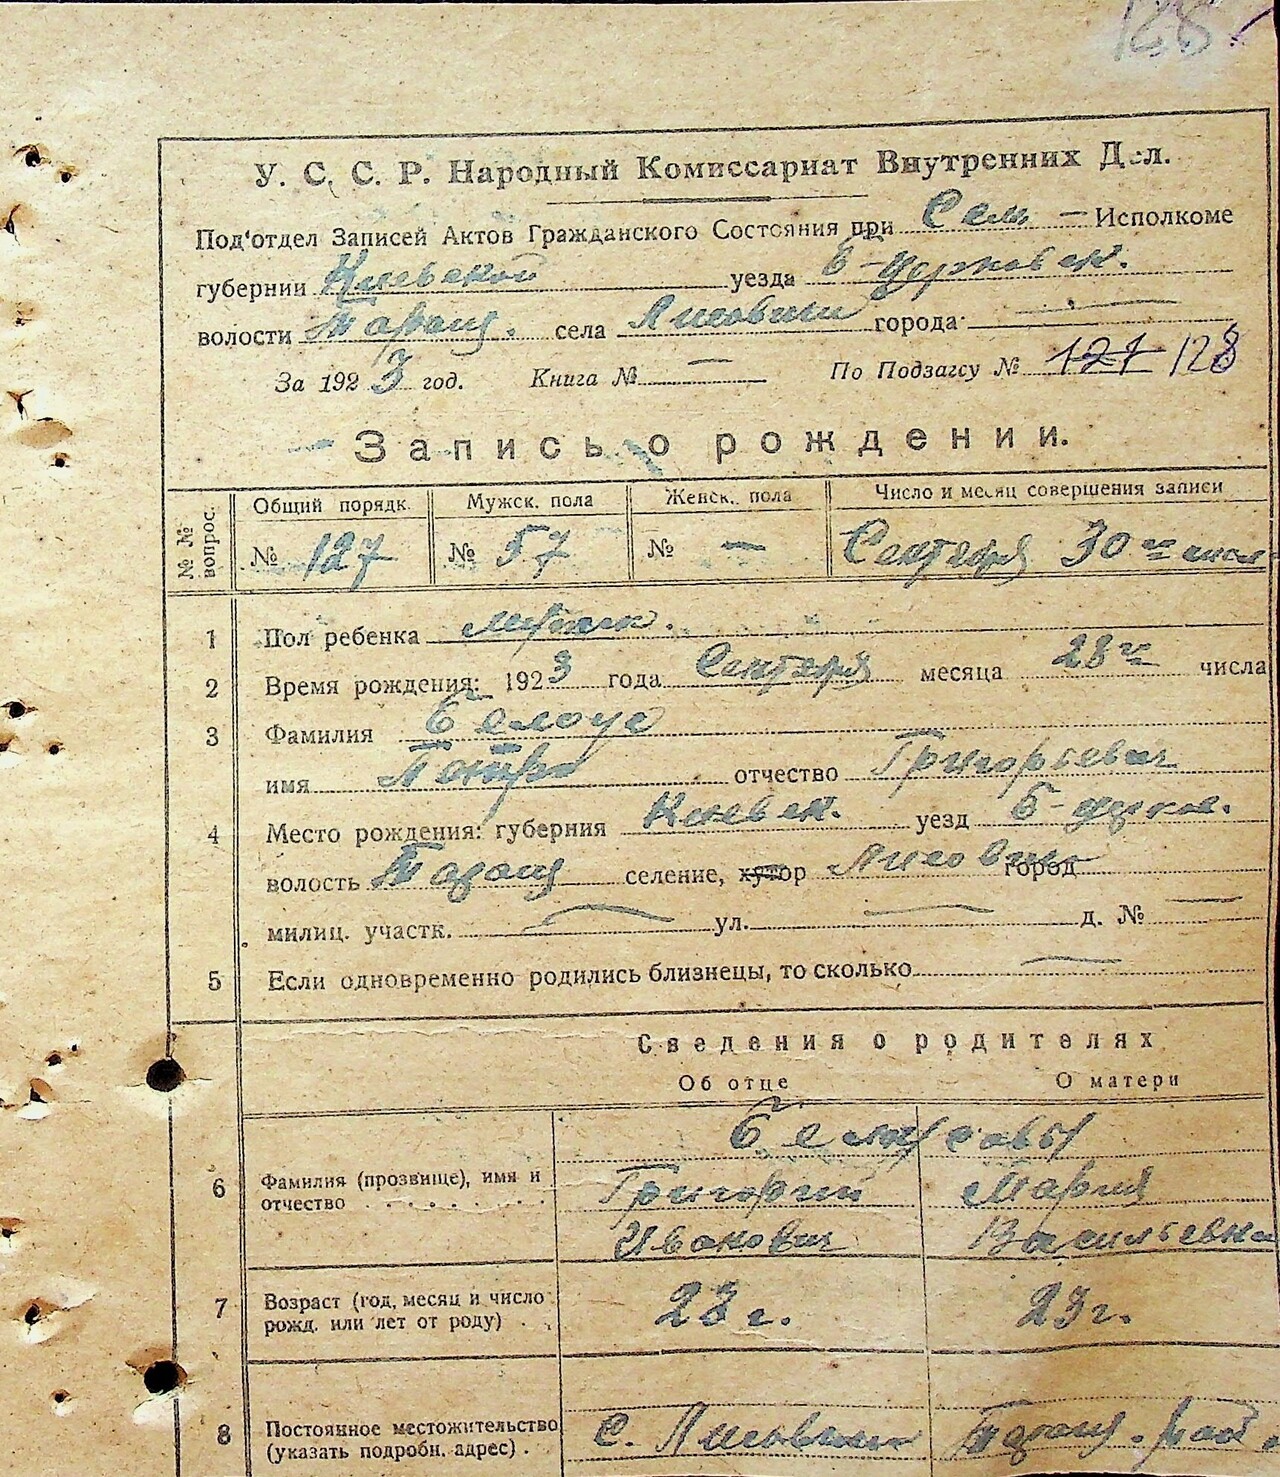 128
У. С. С. Р. Народный Комиссариат Внутренних Дел.
Под'отдел Записей Актов Гражданского Состояния при Сель — Исполкоме
губернии Киевской уезда Б-церковск.
волости Таращ. села Лисовичи города —
За 1923 год. Книга № — По Подзагсу № 127 128
Запись о рождении.
№№ вопрос. Общий порядк. Мужск. пола Женск. пола Число и месяц совершения записи
№ 127 № 57 № — Сентября 30го числа
1 Пол ребенка мужск.
2 Время рождения: 1923 года Сентября месяца 28го числа
3 Фамилия Белоус
имя Петро отчество Григорьевич
4 Место рождения: губерния Киевск. уезд Б-церков.
волость Таращ селение, хутор Лисовичи город
милиц. участк. — ул. — д. № —
5 Если одновременно родились близнецы, то сколько —
Сведения о родителях
Об отце О матери
Белоусовы
6 Фамилия (прозвище), имя и отчество . . . . . . . Григорий Мария
Иванович Васильевна
7 Возраст (год, месяц и число рожд. или лет от роду) . . 23 г. 23 г.
8 Постоянное местожительство (указать подробн. адрес) . С. Лисовичи Таращ.